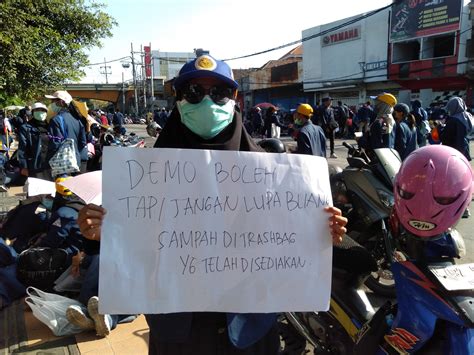 YAMAHA
DEMO BOLEH
TAPI JANGAN LUPA BUANG
SAMPAH DI TRASHBAG
YG TELAH DISEDIAKAN